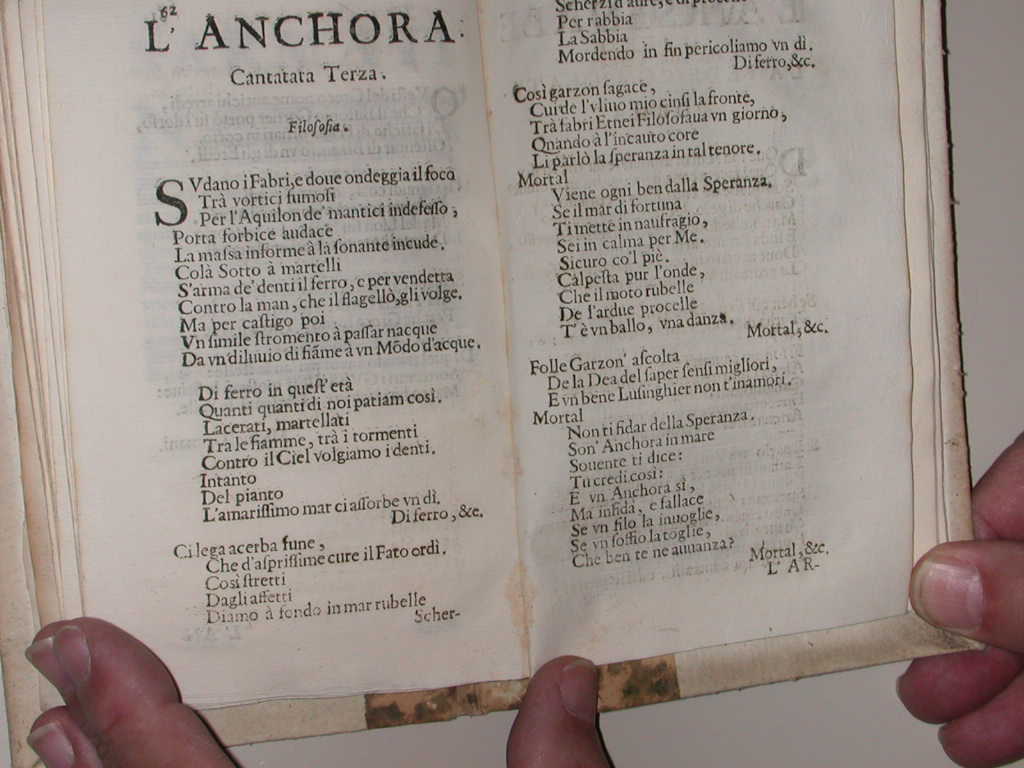 62
L'ANCHORA.
Cantatata Terza.
Filosofia.
SVdano i Fabri, e doue ondeggia il foco
Trà vortici fumosi
Per l'Aquilon de' mantici indefesso,
Porta forbice audace
La massa informe à la sonante incude.
Colà Sotto à martelli
S'arma de' denti il ferro, e per vendetta
Contro la man, che il flagellò, gli volge.
Ma per castigo poi
Vn simile stromento à passar nacque
Da vn diluuio di fiãme à vn Mõdo d'acque.
Di ferro in quest' età
Quanti quanti di noi patiam così.
Lacerati, martellati
Tra le fiamme, trà i tormenti
Contro il Ciel volgiamo i denti.
Intanto
Del pianto
L'amarissimo mar ci assorbe vn dì.
Di ferro, &c.
Ci lega acerba fune,
Che d'asprissime cure il Fato ordì.
Così stretti
Dagli affetti
Diamo à fondo in mar rubelle
Scher-
Scherzi d'aure, e di procelle
Per rabbia
La Sabbia
Mordendo in fin pericoliamo vn dì.
Di ferro, &c.
Così garzon sagace,
Cui de l'vliuo mio cinsi la fronte,
Trà fabri Etnei Filosofaua vn giorno,
Quando à l'incauto core
Li parlò la speranza in tal tenore.
Mortal
Viene ogni ben dalla Speranza.
Se il mar di fortuna
Ti mette in naufragio,
Sei in calma per Me.
Sicuro co'l piè.
Calpesta pur l'onde,
Che il moto rubelle
De l'ardue procelle
T'è vn ballo, vna danza.
Mortal, &c.
Folle Garzon' ascolta
De la Dea del saper sensi migliori,
E vn bene Lusinghier non t'inamori.
Mortal
Non ti fidar della Speranza.
Son' Anchora in mare
Souente ti dice:
Tu credi così:
E vn Anchora sì,
Ma infida, e fallace
Se vn filo la inuoglie,
Se vn soffio la toglie,
Che ben te ne auuanza?
Mortal, &c.
L' AR-